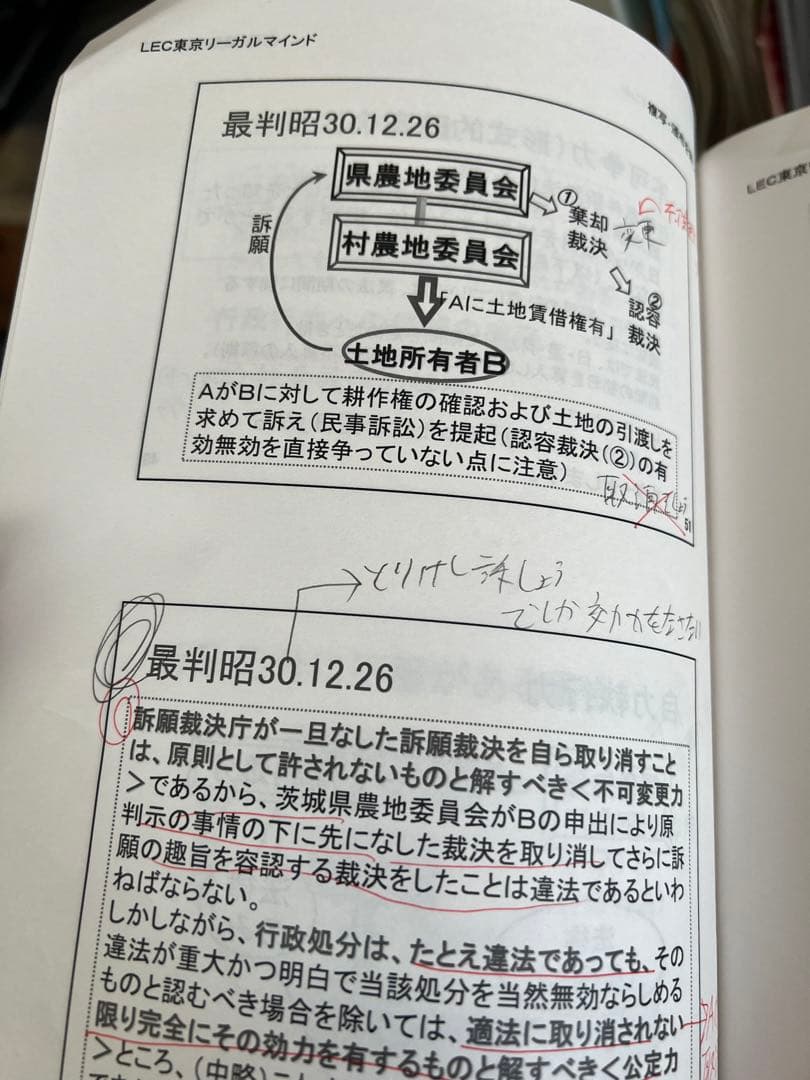 LEC東京リーガルマインド
最判昭30.12.26
県農地委員会
①
棄却
裁決
変更
村農地委員会
訴願
②
認容
裁決
「Aに土地賃借権有」
土地所有者B
AがBに対して耕作権の確認および土地の引渡しを
求めて訴え(民事訴訟)を提起(認容裁決(②)の有
効無効を直接争っていない点に注意)
51
とりけし訴しょう
でしか効力をなさない
最判昭30.12.26
訴願裁決庁が一旦なした訴願裁決を自ら取り消すこと
は、原則として許されないものと解すべき<不可変更力
>であるから、茨城県農地委員会がBの申出により原
判示の事情の下に先になした裁決を取り消してさらに訴
願の趣旨を容認する裁決をしたことは違法であるといわ
ねばならない。
しかしながら、行政処分は、たとえ違法であっても、その
違法が重大かつ明白で当該処分を当然無効ならしめる
ものと認むべき場合を除いては、適法に取り消されない
限り完全にその効力を有するものと解すべき<公定力
>ところ、(中略)
LEC東京